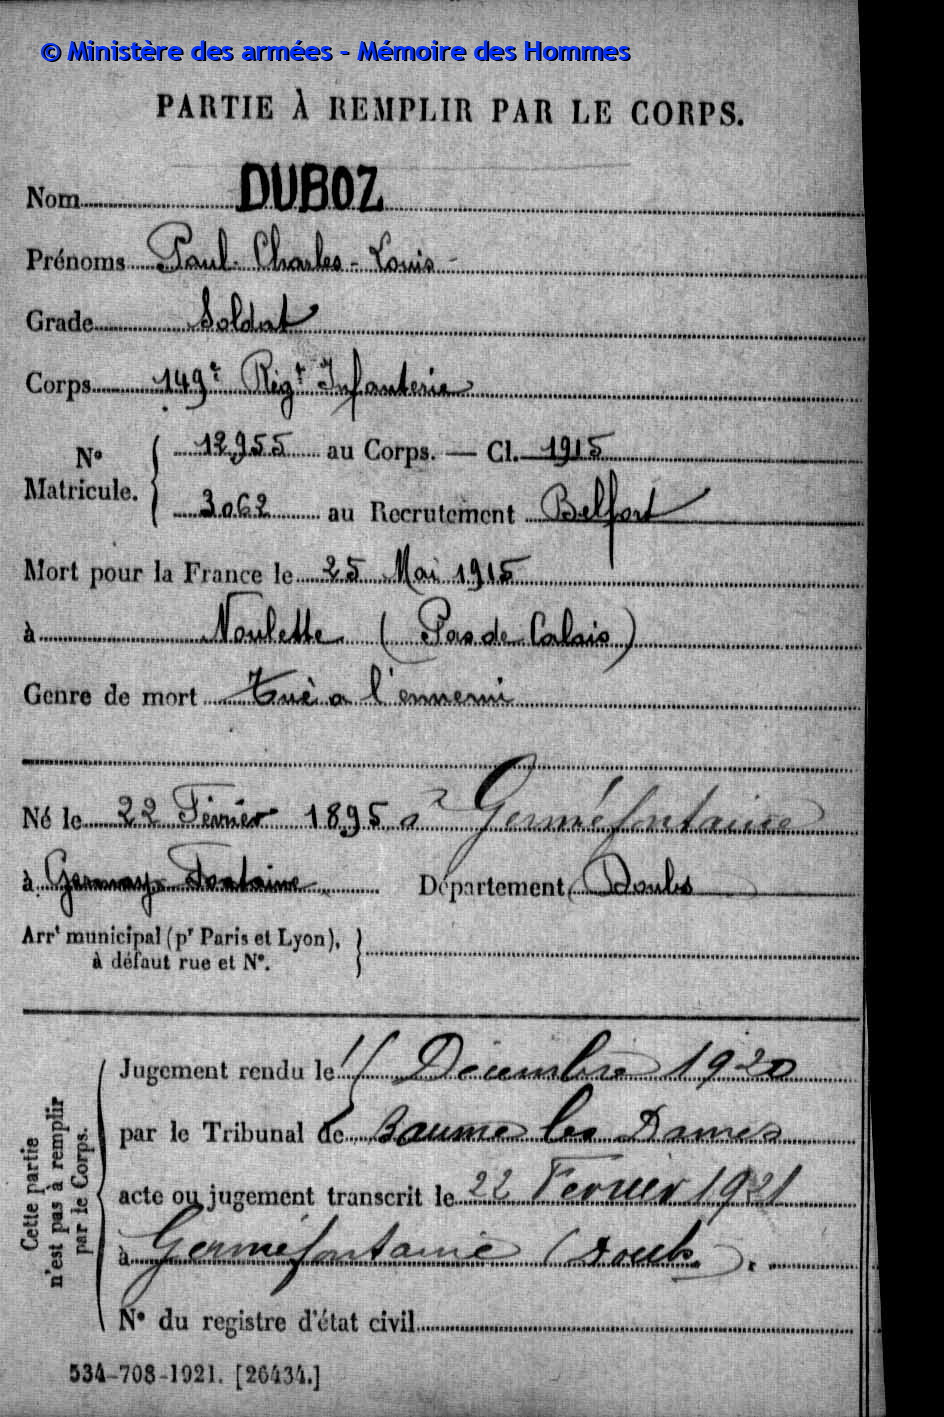 © Ministère des armées - Mémoire des Hommes
PARTIE À REMPLIR PAR LE CORPS.
Nom DUBOZ
Prénoms Paul-Charles-Louis-
Grade Soldat
Corps 149e Régt Infanterie
No Matricule. 12955 au Corps. — Cl. 1915
3062 au Recrutement Belfort
Mort pour la France le 25 Mai 1915
à Noulette (Pas de Calais)
Genre de mort Tué a l'ennemi
Né le 22 Février 1895 à Germéfontaine
à Germay-Fontaine Département Doubs
Arrt municipal (pr Paris et Lyon),
à défaut rue et No.
Cette partie
n'est pas à remplir
par le Corps.
Jugement rendu le Décembre 1920
par le Tribunal de Baume les Dames
acte ou jugement transcrit le 22 Février 1921
à Germéfontaine (Doubs).
No du registre d'état civil
534-708-1921. [26434.]